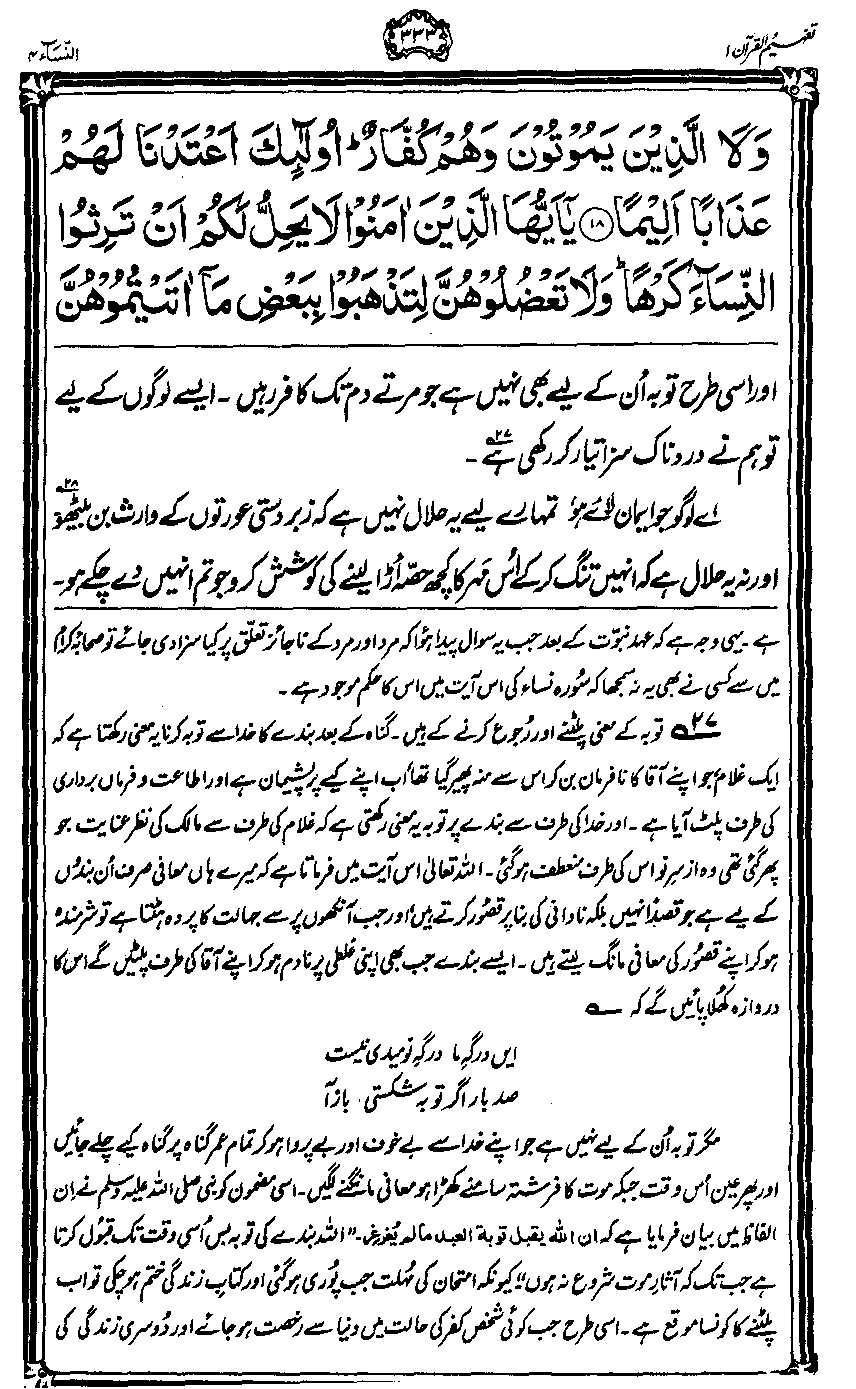 تفہیم القرآن ۱
۳۳۳
النّسآء ۴
وَلَا الَّذِيْنَ يَمُوْتُوْنَ وَهُمْ كُفَّارٌ ؕ اُولٰٓئِكَ اَعْتَدْنَا لَهُمْ
عَذَابًا اَلِيْمًا ۱۸ يٰۤاَيُّهَا الَّذِيْنَ اٰمَنُوْا لَا يَحِلُّ لَكُمْ اَنْ تَرِثُوا
النِّسَآءَ كَرْهًا ؕ وَلَا تَعْضُلُوْهُنَّ لِتَذْهَبُوْا بِبَعْضِ مَاۤ اٰتَيْتُمُوْهُنَّ
اور اسی طرح توبہ اُن کے لیے بھی نہیں ہے جو مرتے دم تک کافر رہیں ۔ ایسے لوگوں کے لیے
تو ہم نے دردناک سزا تیار کر رکھی ہے ۲۷ ۔
اے لوگو جو ایمان لائے ہو، تمہارے لیے یہ حلال نہیں ہے کہ زبردستی عورتوں کے وارث بن بیٹھو ۲۸
اور نہ یہ حلال ہے کہ انہیں تنگ کر کے اُس مہر کا کچھ حصّہ اُڑا لینے کی کوشش کرو جو تم انہیں دے چکے ہو۔
ہے ۔ یہی وجہ ہے کہ عہد نبوّت کے بعد جب یہ سوال پیدا ہُوا کہ مرد اور مرد کے ناجائز تعلّق پر کیا سزا دی جائے تو صحابۂ کرامؓ
میں سے کسی نے بھی یہ نہ سمجھا کہ سُورہ نساء کی اس آیت میں اس کا حکم موجود ہے ۔
۲۷ توبہ کے معنی پلٹنے اور رُجوع کرنے کے ہیں ۔ گناہ کے بعد بندے کا خدا سے توبہ کرنا یہ معنی رکھتا ہے کہ
ایک غلام، جو اپنے آقا کا نافرمان بن کر اس سے منہ پھیر گیا تھا، اب اپنے کیے پر پشیمان ہے اور اطاعت و فرماں برداری
کی طرف پلٹ آیا ہے ۔ اور خدا کی طرف سے بندے پر توبہ یہ معنی رکھتی ہے کہ غلام کی طرف سے مالک کی نظرِ عنایت جو
پھر گئی تھی وہ ازسرِنو اس کی طرف منعطف ہو گئی ۔ اللہ تعالیٰ اس آیت میں فرماتا ہے کہ میرے ہاں معافی صرف اُن بندوں
کے لیے ہے جو قصداً نہیں بلکہ نادانی کی بنا پر قصُور کرتے ہیں، اور جب آنکھوں پر سے جہالت کا پردہ ہٹتا ہے تو شرمندہ
ہو کر اپنے قصُور کی معافی مانگ لیتے ہیں ۔ ایسے بندے جب بھی اپنی غلطی پر نادم ہو کر اپنے آقا کی طرف پلٹیں گے اس کا
دروازہ کھلا پائیں گے کہ ؎
ایں درگہِ ما درگہِ نومیدی نیست
صد بار اگر توبہ شکستی، باز آ
مگر توبہ اُن کے لیے نہیں ہے جو اپنے خدا سے بے خوف اور بے پروا ہو کر تمام عمر گناہ پر گناہ کیے چلے جائیں
اور پھر عین اُس وقت جبکہ موت کا فرشتہ سامنے کھڑا ہو معافی مانگنے لگیں ۔ اسی مضمون کو نبی صلی اللہ علیہ وسلم نے اِن
الفاظ میں بیان فرمایا ہے کہ ان الله يقبل توبة العبد مالم يغرغر۔ ”اللہ بندے کی توبہ بس اُسی وقت تک قبُول کرتا
ہے جب تک کہ آثارِ موت شروع نہ ہوں“ کیونکہ امتحان کی مُہلت جب پُوری ہو گئی اور کتابِ زندگی ختم ہو چکی تو اب
پلٹنے کا کونسا موقع ہے ۔ اسی طرح جب کوئی شخص کفر کی حالت میں دنیا سے رخصت ہو جائے اور دُوسری زندگی کی